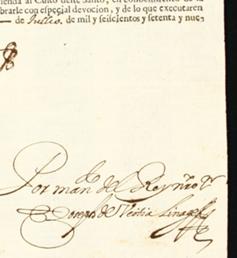 al Culto deste Santo, en
brarle con especial devocion, y de lo que executaren
de Julio. de mil y seiscientos y setenta y nue-
Por man.do del Rey nro S.r
Joseph de Veitia Linage